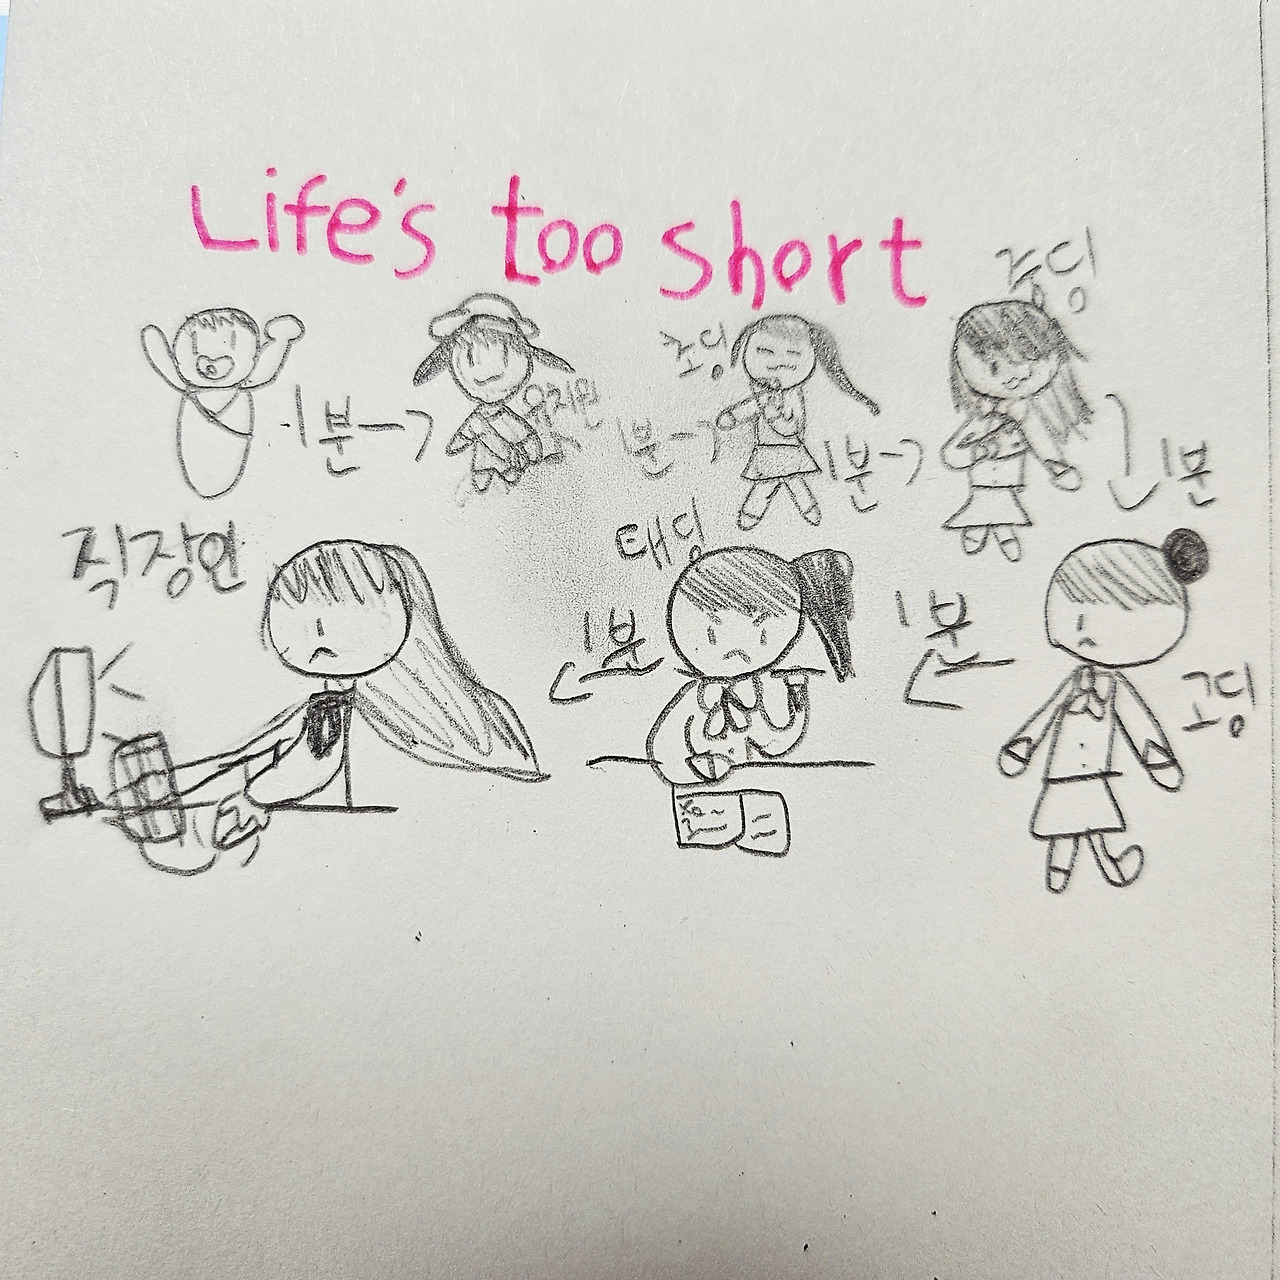 Life's too short
1분→
유치원
1분→
초딩
1분→
중딩
1분
고딩
1분
대딩
1분
직장인